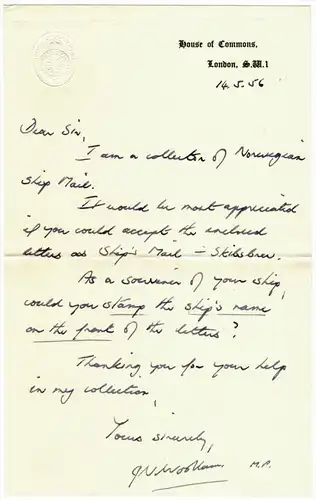 House of Commons,
London, S.W.1
14.5.56
Dear Sir,
I am a collector of Norwegian
Ship Mail.
It would be most appreciated
if you could accept the enclosed
letters as Ship's Mail – Skibsbrev.
As a souvenir of your ship,
could you stamp the ship's name
on the front of the letters?
Thanking you for your help
in my collection,
Yours sincerely,
M.P.